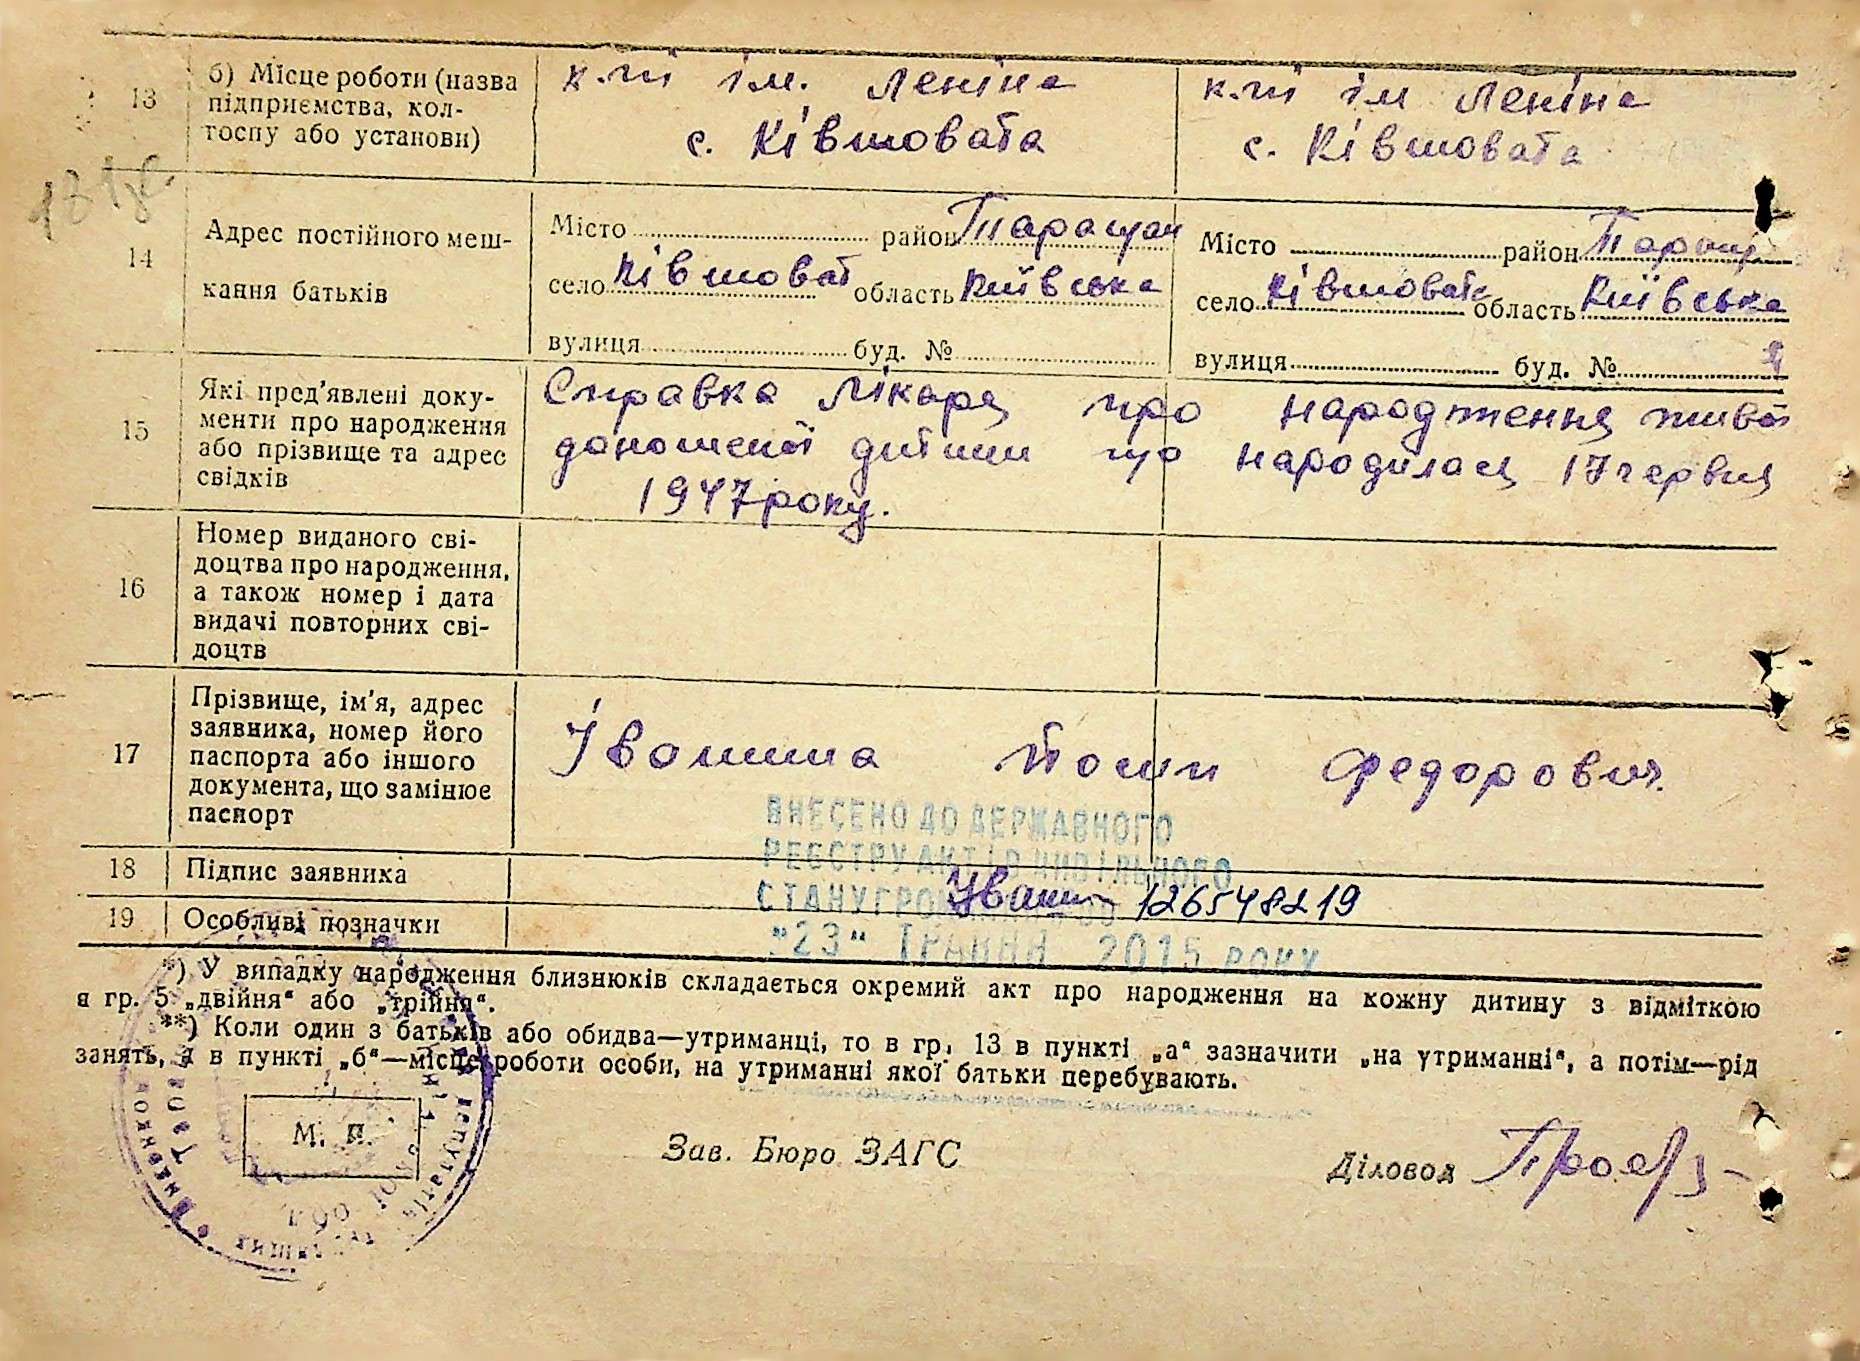 13
б) Місце роботи (назва
підприємства, кол-
госпу або установи)
к.гп ім. Леніна
с. Ківшовата
к.гп ім Леніна
с. Ківшовата
14
Адрес постійного меш-
кання батьків
Місто район Таращан
село Ківшоват область Київська
вулиця буд. №
Місто район Таращ
село Ківшовата область Київська
вулиця буд. №
15
Які пред'явлені доку-
менти про народження
або прізвище та адрес
свідків
Справка лікаря про народження живої
доношеної дитини що народилася 17 червня
1947 року.
16
Номер виданого сві-
доцтва про народження,
а також номер і дата
видачі повторних сві-
доцтв
17
Прізвище, ім'я, адрес
заявника, номер його
паспорта або іншого
документа, що замінює
паспорт
Івашина Йосип Федорович.
ВНЕСЕНО ДО ДЕРЖАВНОГО
РЕЄСТРУ АКТІВ ЦИВІЛЬНОГО
СТАНУ ГРОМАДЯН ЗА
18 Підпис заявника
Іваши 126548219
19 Особливі позначки
"23" ТРАВНЯ 2015 РОКУ
*) У випадку народження близнюків складається окремий акт про народження на кожну дитину з відміткою
в гр. 5 „двійня" або „трійня".
**) Коли один з батьків або обидва—утриманці, то в гр. 13 в пункті „а" зазначити „на утриманні", а потім—рід
занять, а в пункті „б"—місце роботи особи, на утриманні якої батьки перебувають.
М. П.
Зав. Бюро ЗАГС
Діловод